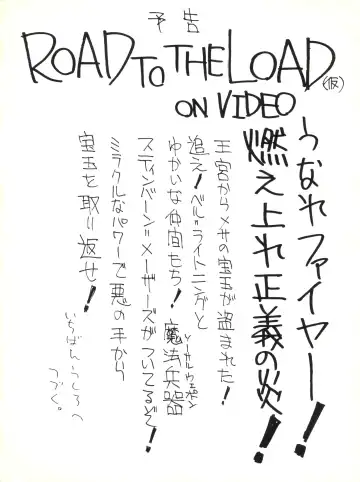 予告
ROAD TO THE LOAD(仮)
ON VIDEO
うなれファイヤー!
燃え上れ正義の炎!
王宮からメサの宝玉が盗まれた!
追え!ベル=ライトニングと
ゆかいな仲間たち!魔法兵器
ソーサルウェポン
スティンバーン=メーザーズがついてるぞ!
ミラクルなパワーで悪の手から
宝玉を取り返せ!
いちばんうしろへ
つづく。